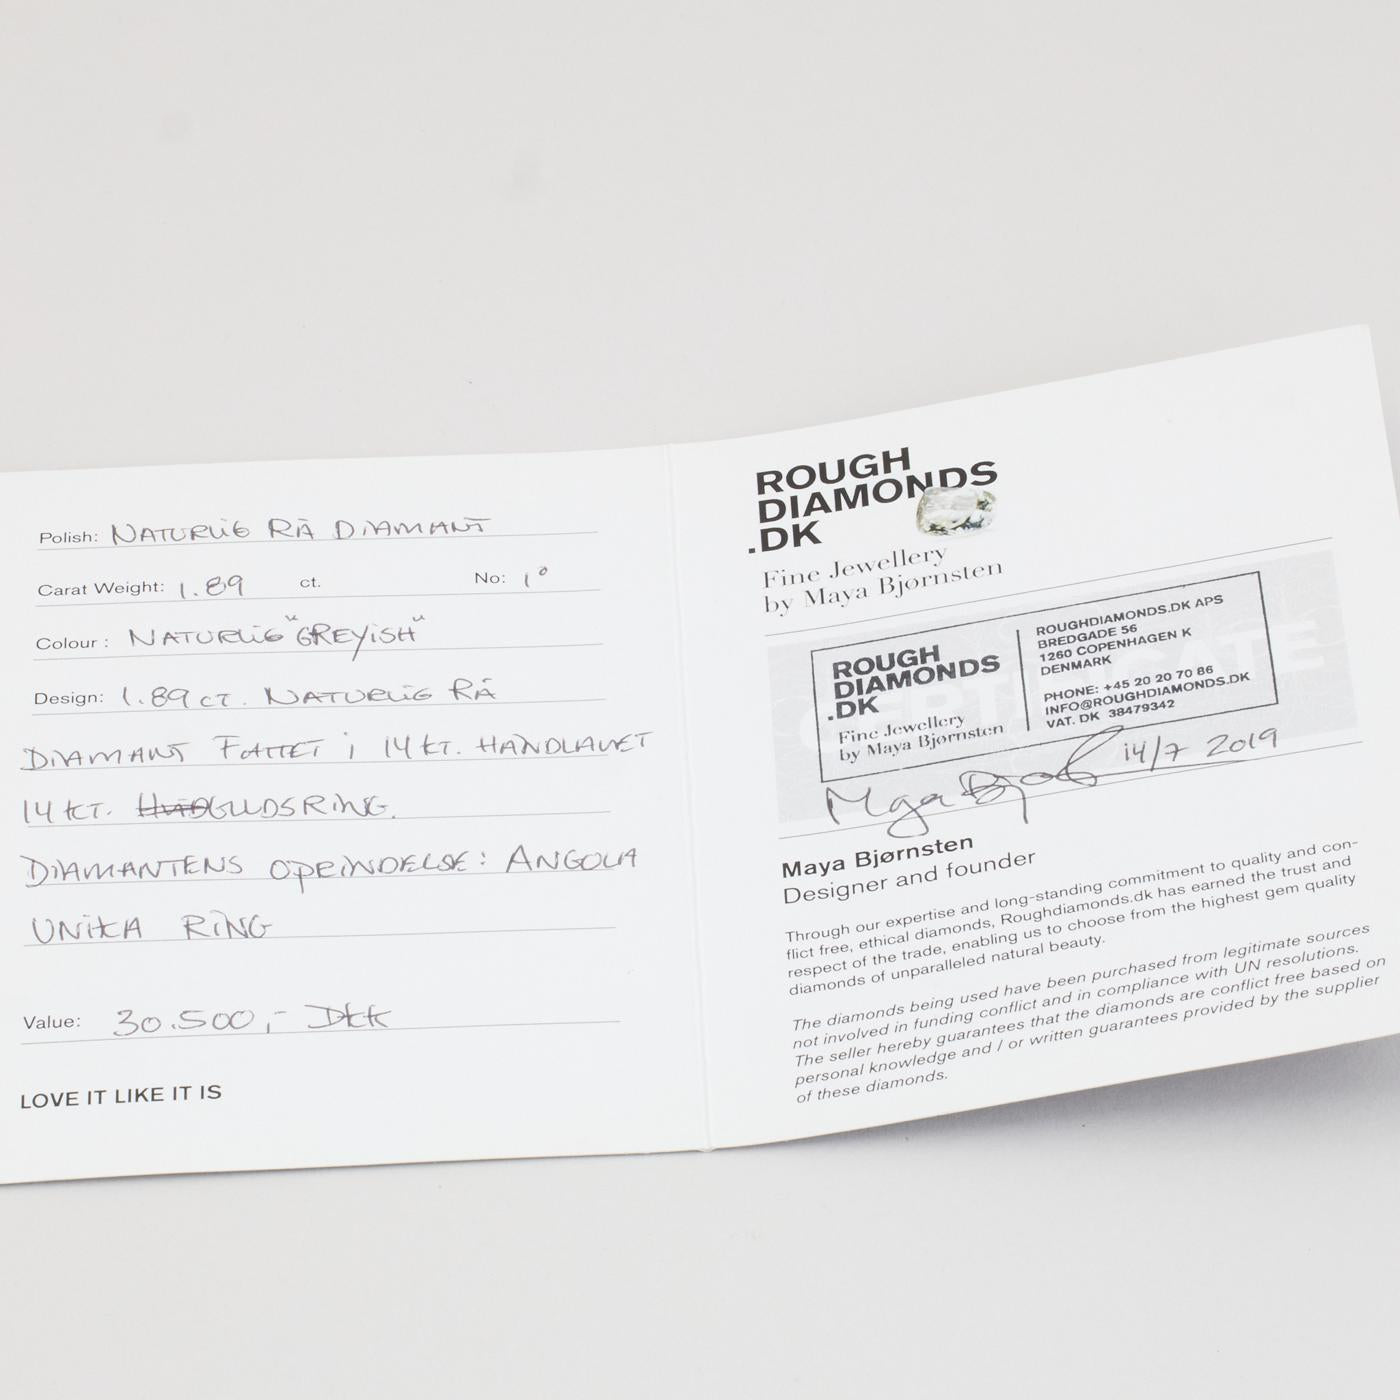 Polish: NATURLIG RÅ DIAMANT
Carat Weight: 1.89 ct. No: 1°
Colour : NATURLIG "GREYISH"
Design: 1.89 CT. NATURLIG RÅ
DIAMANT FATTET i 14 KT. HÅNDLAVET
14 KT. GULDSRING.
DIAMANTENS OPRINDELSE: ANGOLA
UNIKA RING
Value: 30.500,- DKK
LOVE IT LIKE IT IS
ROUGH
DIAMONDS
.DK
Fine Jewellery
by Maya Bjørnsten
CERTIFICATE
ROUGH
DIAMONDS
.DK
Fine Jewellery
by Maya Bjørnsten
ROUGHDIAMONDS.DK APS
BREDGADE 56
1260 COPENHAGEN K
DENMARK
PHONE: +45 20 20 70 86
INFO@ROUGHDIAMONDS.DK
VAT. DK 38479342
14/7 2019
Maya Bjørnsten
Designer and founder
Through our expertise and long-standing commitment to quality and con-
flict free, ethical diamonds, Roughdiamonds.dk has earned the trust and
respect of the trade, enabling us to choose from the highest gem quality
diamonds of unparalleled natural beauty.
The diamonds being used have been purchased from legitimate sources
not involved in funding conflict and in compliance with UN resolutions.
The seller hereby guarantees that the diamonds are conflict free based on
personal knowledge and / or written guarantees provided by the supplier
of these diamonds.